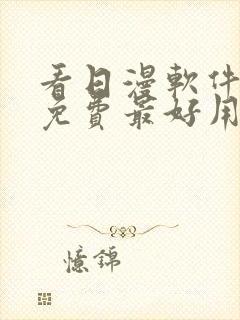 看日漫軟件
免費最好用
憶錦